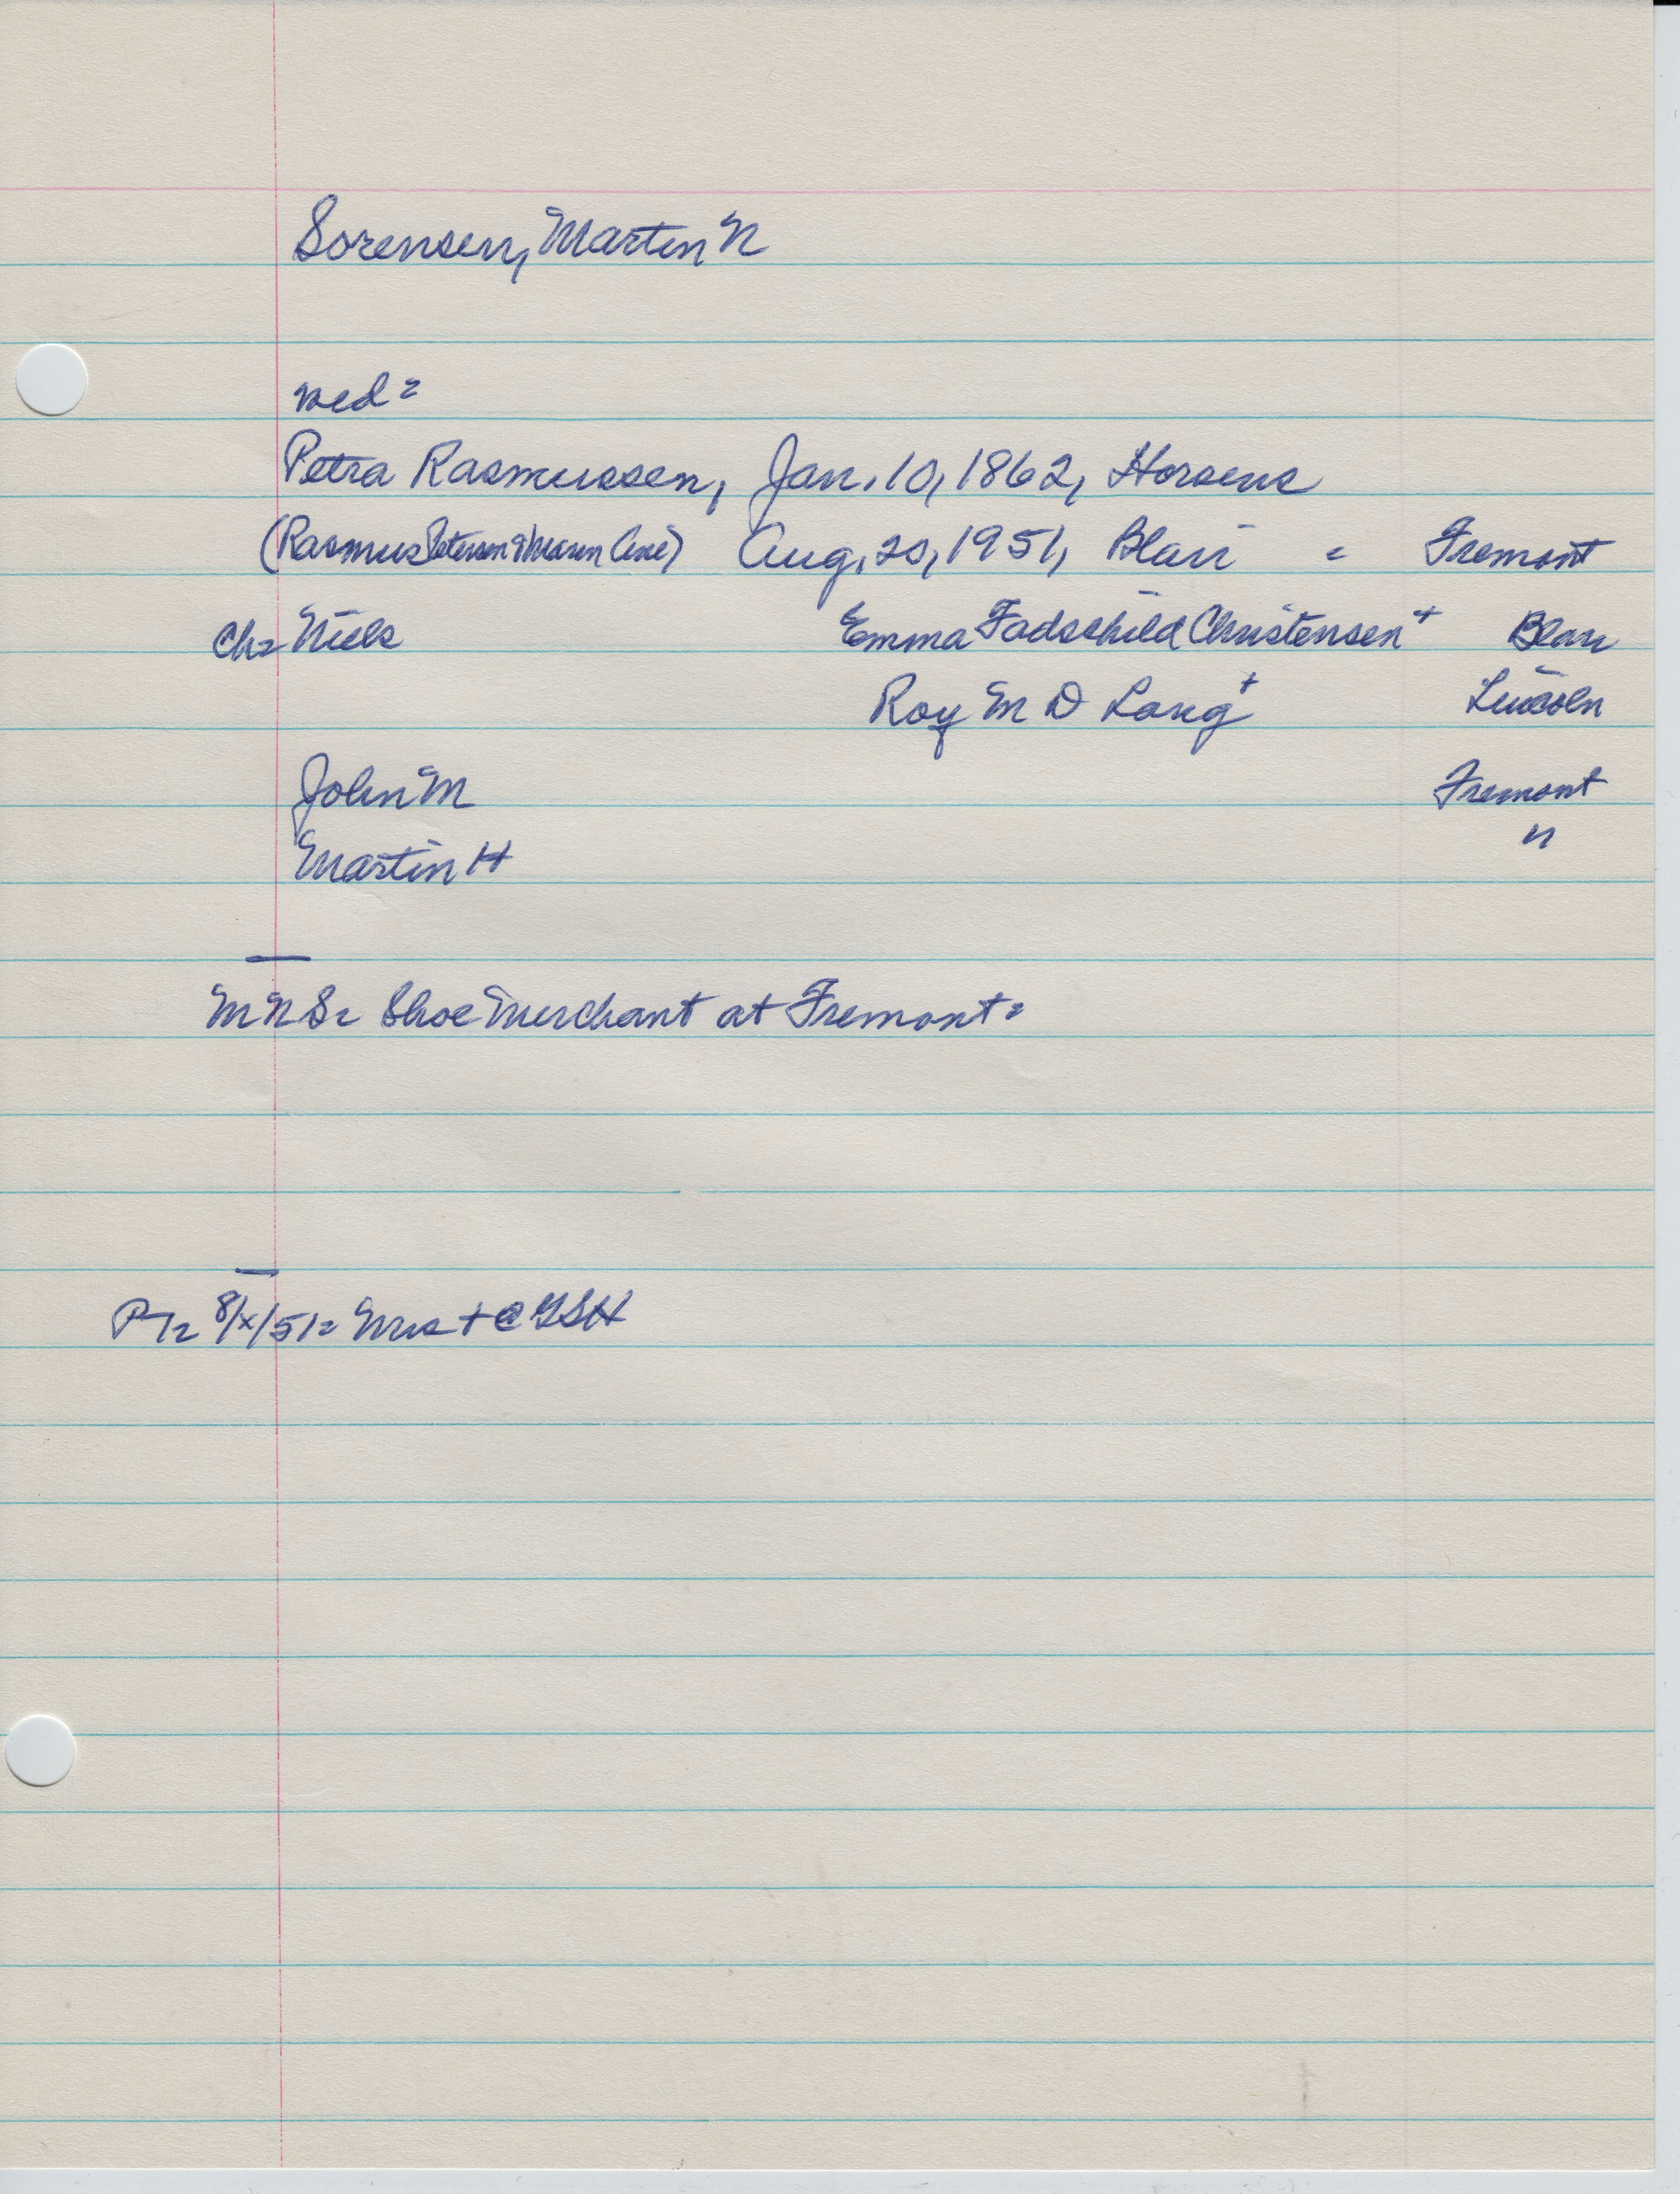 Sorensen, Martin N
wed =
Petra Rasmussen, Jan. 10, 1862, Horsens
(Rasmus Petersen & Maren Cine) Aug. 20, 1951, Blair = Fremont
Ch= Niels Emma Fadschild Christensen + Blair
Roy M D Long + Lincoln
John M Fremont
Martin H "
M N S = Shoe Merchant at Fremont =
8/x/51= Mrs + @ GSH